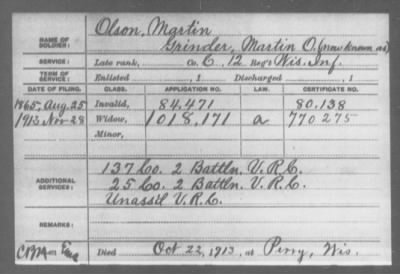 NAME OF SOLDIER: Olson, Martin
Grinder, Martin O. (now known as)
SERVICE: Late rank, Co. C, 12 Reg't Wis. Inf.
TERM OF SERVICE: Enlisted , 1 Discharged , 1
DATE OF FILING. CLASS. APPLICATION NO. LAW. CERTIFICATE NO.
1865, Aug. 25 Invalid, 84,471 80,138
1913 Nov 28 Widow, 1018,171 a 770275
Minor,
ADDITIONAL SERVICES: 137 Co. 2 Battln, V.R.C.
25 Co. 2 Battln. V.R.C.
Unass'd V.R.C.
REMARKS:
Died Oct 22, 1913, at Perry, Wis.